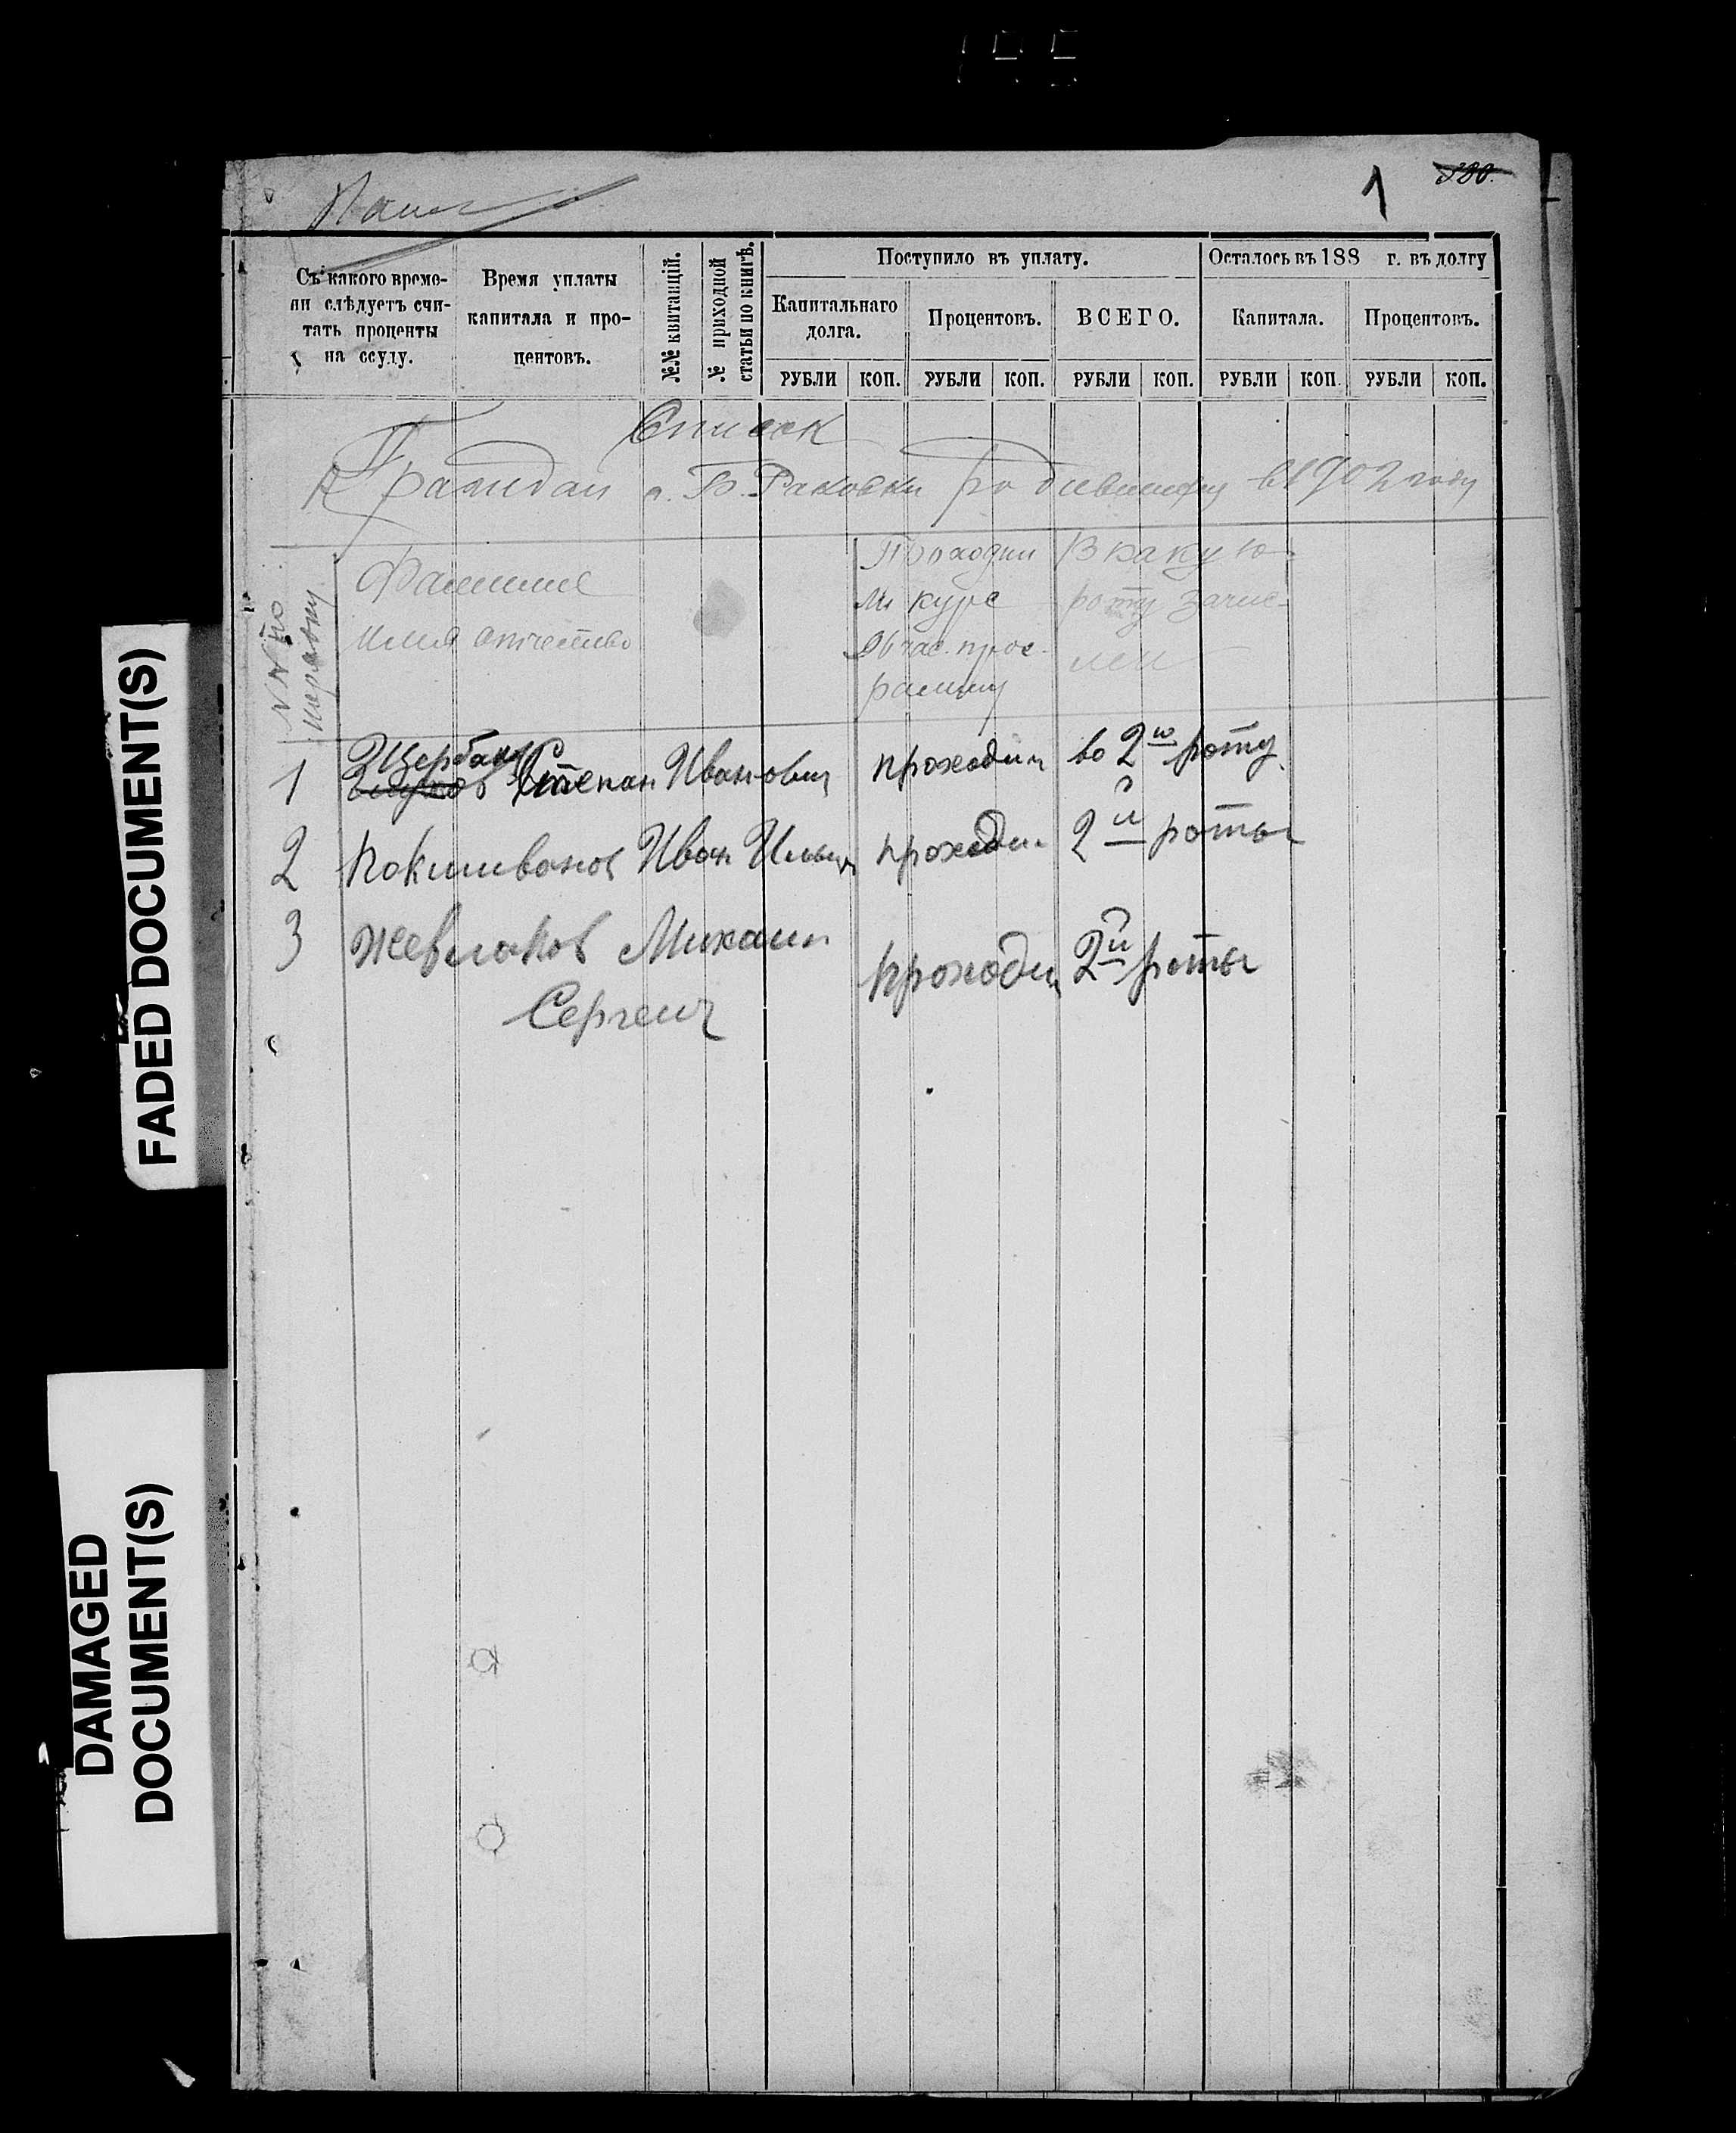 1 380.
Съ какого време-
ни слѣдуетъ счи-
тать проценты
на ссуду.
Время уплаты
капитала и про-
центовъ.
№№ квитанцій.
№ приходной
статьи по книгѣ.
Поступило въ уплату.
Капитальнаго
долга.
Процентовъ.
ВСЕГО.
Осталось въ 188 г. въ долгу
Капитала.
Процентовъ.
РУБЛИ КОП. РУБЛИ КОП. РУБЛИ КОП. РУБЛИ КОП. РУБЛИ КОП.
Список
Граждан с. Б. Раковки родившихся в 1902 году
NN по
порядку
Фамилие
имя отчество
Проходил
ли курс
96 час. прог-
рамму
В какую
роту зачис-
лен
1 Щербаков Степан Иванович проходил во 2ю роту
2 Кокшиванов Иван Ильич проходил 2й роты
3 Жевлаков Михаил проходил 2й роты
Сергеич
FADED DOCUMENT(S)
DAMAGED
DOCUMENT(S)